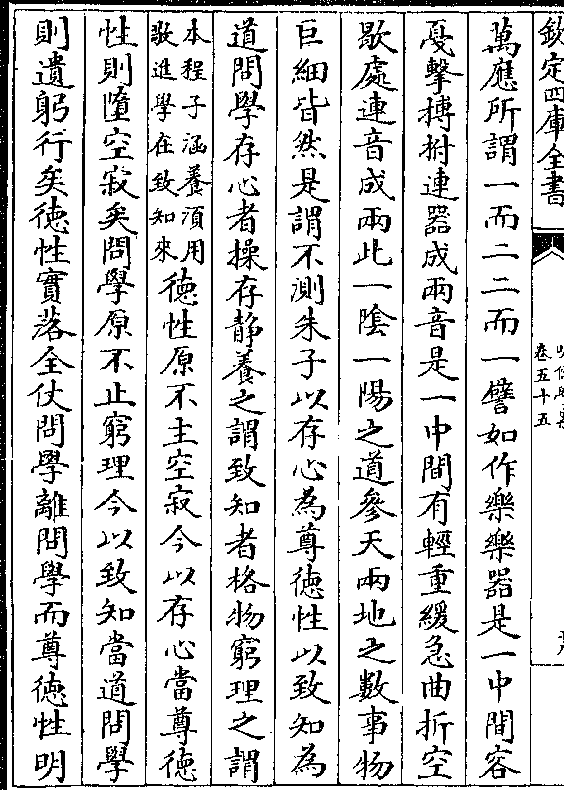 欽定四庫全書
卷五十五
萬應所謂一而二二而一譬如作樂樂器是一中間容
戞擊搏拊連器成兩音是一中間有輕重緩急曲折空
歇處連音成兩此一陰一陽之道參天兩地之數事物
巨細皆然是謂不測朱子以存心為尊徳性以致知為
道問學存心者操存靜養之謂致知者格物窮理之謂
本程子涵養須用
敬進學在致知來
徳性原不主空寂今以存心當尊徳
性則墮空寂矣問學原不止窮理今以致知當道問學
則遺躬行矣徳性實落全仗問學離問學而尊徳性明